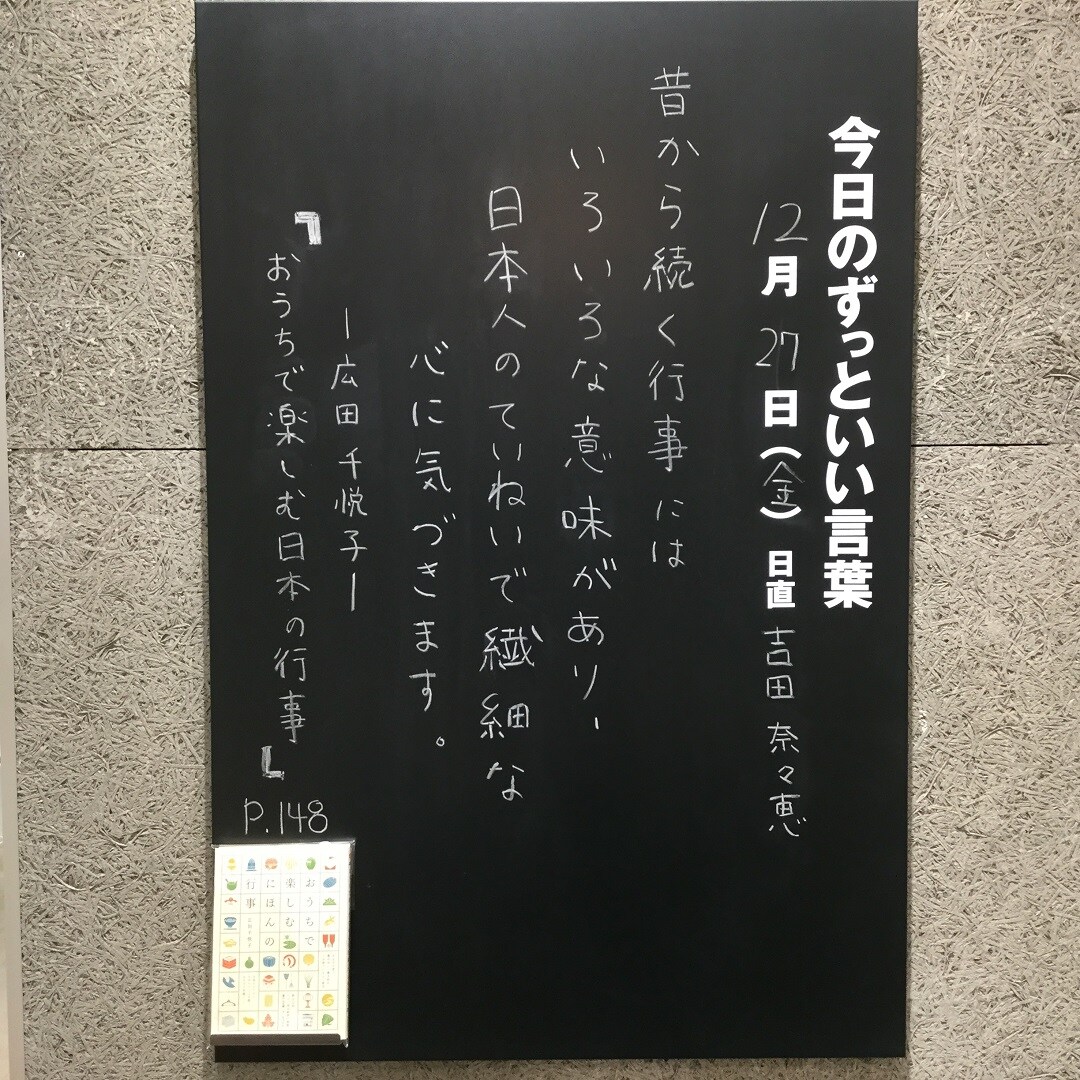 今日のずっといい言葉
12月27日(金) 日直 吉田 奈々恵
昔から続く行事には
いろいろな意味があり、
日本人のていねいで繊細な
心に気づきます。
ー広田 千悦子ー
『おうちで楽しむ日本の行事』
P.148
おうちで
楽しむ
にほんの
行事